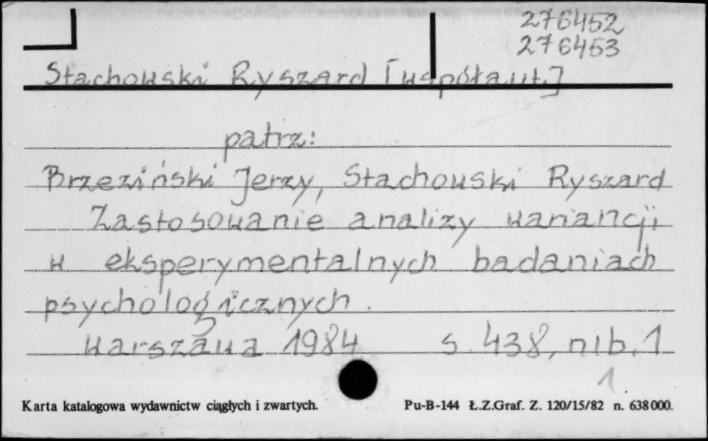 276452
276453
Stachowski Ryszard [współaut.]
patrz:
Brzeziński Jerzy, Stachowski Ryszard
Zastosowanie analizy wariancji
w eksperymentalnych badaniach
psychologicznych.
Warszawa 1984 s. 438, nlb. 1
1
Karta katalogowa wydawnictw ciągłych i zwartych. Pu-B-144 Ł.Z.Graf. Z. 120/15/82 n. 638000.